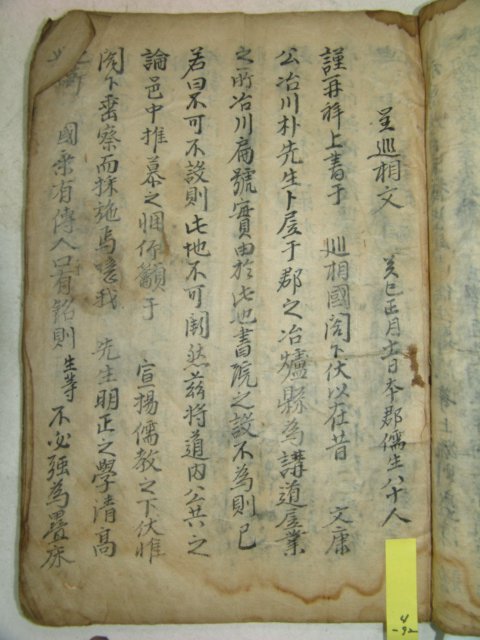 呈巡相文 癸巳正月十一日本郡儒生八十人
謹再拜上書于 巡相國閤下伏以在昔 文康
公冶川朴先生卜居于郡之冶爐縣為講道居業
之所冶川扁號實由於此也書院之設不為則已
若曰不可不設則此地不可闕然玆將道內公共之
論邑中推慕之悃仰籲于 宣揚儒教之下伏惟
閤下垂察而採施焉噫我 先生明正之學清高
之節 國乘有傳人口有銘則生等不必強為疊床
4
-92